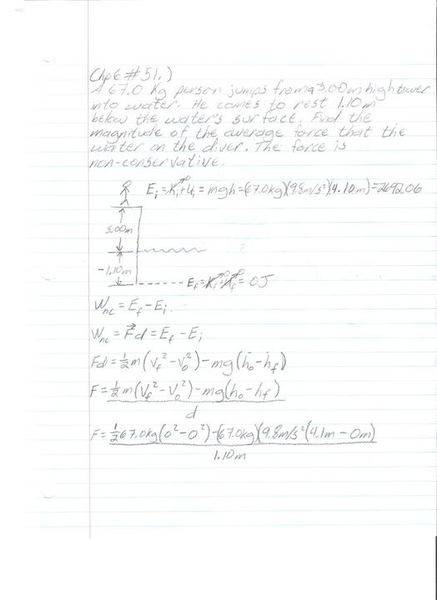 Chp 6 #51.)
A 67.0 kg person jumps from a 3.00m high tower
into water. He comes to rest 1.10m
below the water's surface. Find the
magnitude of the average force that the
water on the diver. The force is
non-conservative.
E_i = K_i + U_i = mgh = (67.0kg)(9.8m/s²)(4.10m) =
3.00m
-1.10m
E_f = = 0J
W_nc = E_f - E_i
W_nc = F⃗d = E_f - E_i
Fd = ½m(V_f² - V_o²) - mg(h_o - h_f)
F = ½m(V_f² - V_o²) - mg(h_o - h_f)
d
F = ½67.0kg(0² - 0²) - (67.0kg)(9.8m/s²(4.1m - 0m)
1.10m